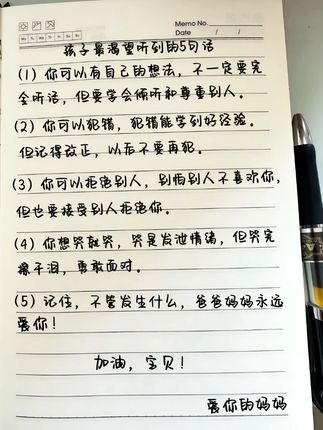 Memo No.
Date / /
Mo Tu We Th Fr Sa Su
孩子最渴望听到的5句话
(1) 你可以有自己的想法，不一定要完
全听话，但要学会倾听和尊重别人。
(2) 你可以犯错，犯错能学到好经验。
但记得改正，以后不要再犯。
(3) 你可以拒绝别人，别怕别人不喜欢你，
但也要接受别人拒绝你。
(4) 你想哭就哭，哭是发泄情绪，但哭完
擦干泪，勇敢面对。
(5) 记住，不管发生什么，爸爸妈妈永远
爱你！
加油，宝贝！
爱你的妈妈